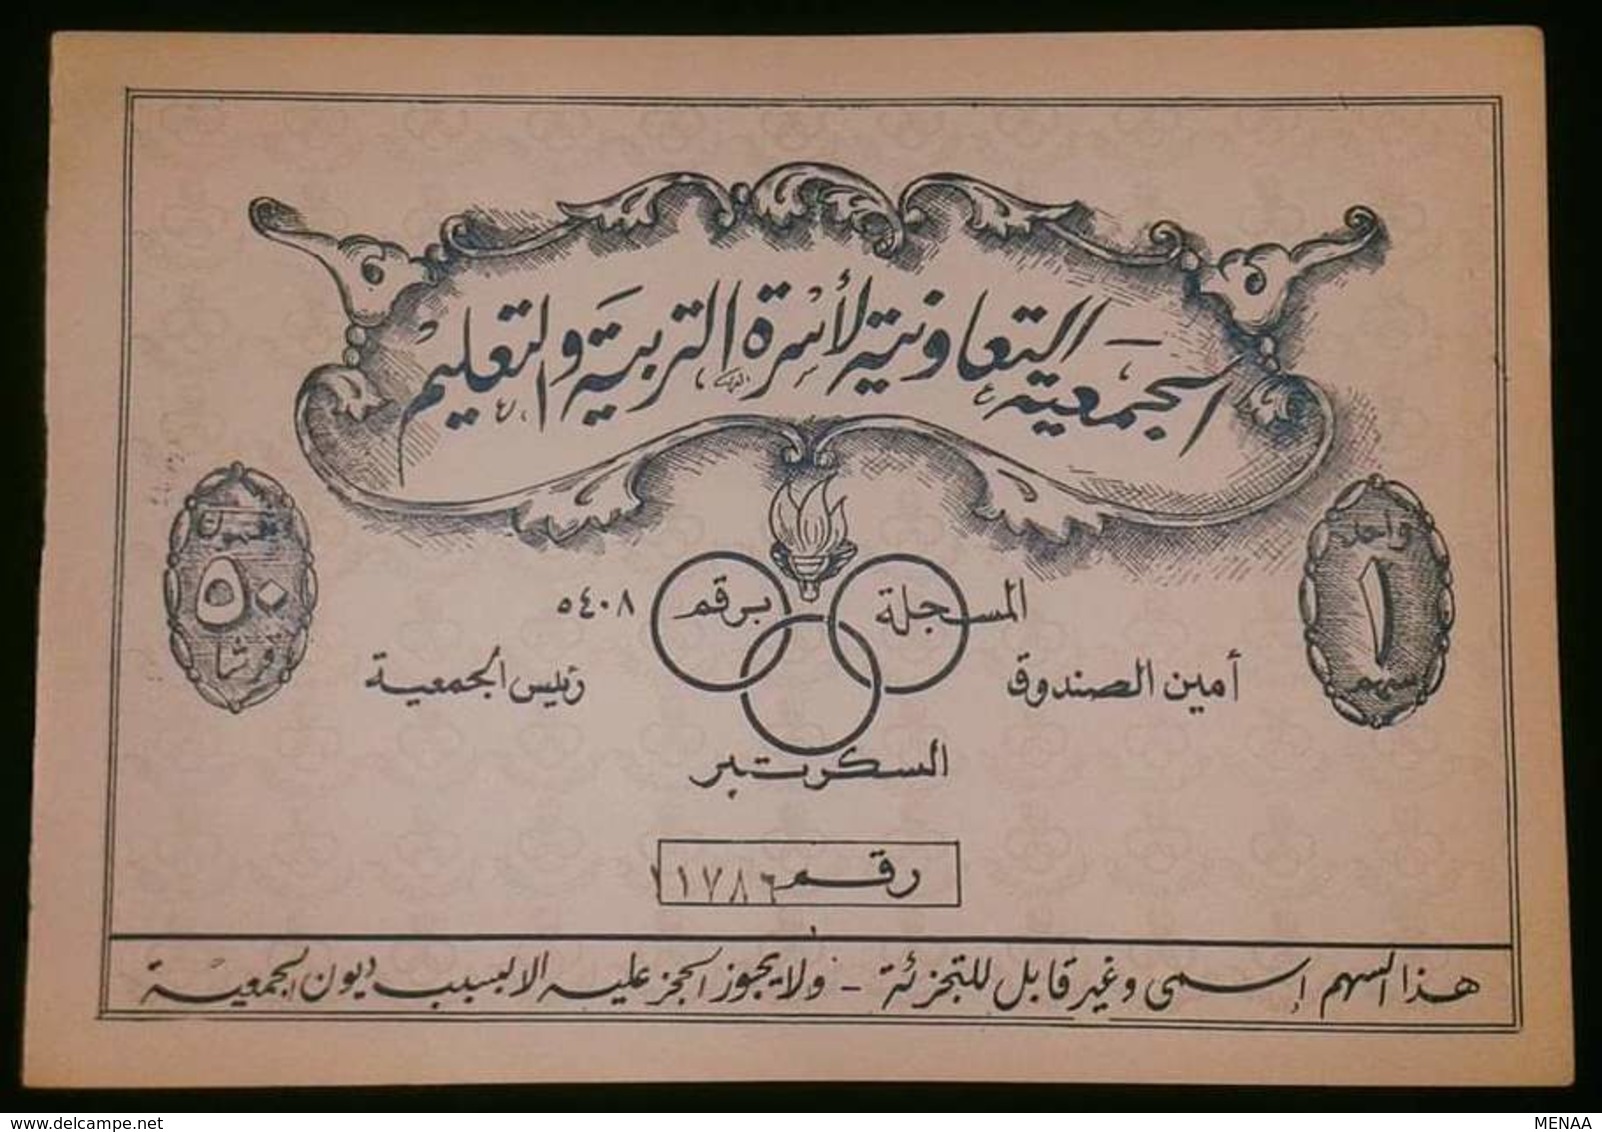 الجمعية التعاونية لأسرة التربية والتعليم
المسجلة برقم ٥٤٠٨
واحد
١
سهم
خمسون
٥٠
قرشا
أمين الصندوق
رئيس الجمعية
السكرتير
رقم ١١٧٨٦
هذا السهم إسمى وغير قابل للتجزئة - ولا يجوز الحجز عليه الا بسبب ديون الجمعية
MENAA
delcampe.net